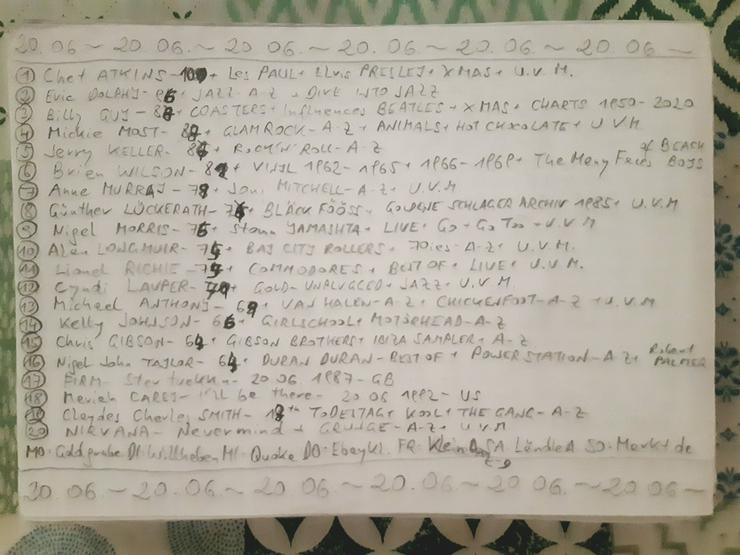 20.06.~ 20.06.~ 20.06.~ 20.06.~ 20.06.~ 20.06.~
1 Chet ATKINS - 100 + LES PAUL + Elvis PRESLEY + XMAS + U.V.M.
2 Eric DOLPHY - 96 + JAZZ A-Z + DIVE INTO JAZZ
3 Billy GUY - 88 + COASTERS + Influences BEATLES + XMAS + CHARTS 1950-2020
4 Mickie MOST - + GLAMROCK - A-Z + ANIMALS + HOT CHOCOLATE + U.V.M
5 Jerry KELLER - + ROCK'N'ROLL - A-Z
6 Brien WILSON - + VINYL 1962-1965 + 1966-1969 + The Many Faces of BEACH BOYS
7 Anne MURRAY - + Joni MITCHELL - A-Z + U.V.M
8 Günther LÜCKERATH - + BLÄCK FÖÖSS + SCHLAGER ARCHIV 1985 + U.V.M
9 Nigel MORRIS - 76 + Stomu YAMASHTA + LIVE + Go + Go Too + U.V.M
10 Alan LONGMUIR - + BAY CITY ROLLERS + 70ies - A-Z + U.V.M.
11 Lionel RICHIE - + COMMODORES + BEST OF + LIVE + U.V.M.
12 Cyndi LAUPER - + GOLD - UNPLUGGED + JAZZ + U.V.M.
13 Michael ANTHONY - + VAN HALEN - A-Z + CHICKENFOOT - A-Z + U.V.M
14 Kelly JOHNSON - 66 + GIRLSCHOOL + MOTÖRHEAD - A-Z
15 Chris GIBSON - + GIBSON BROTHERS + IBIZA SAMPLER + A-Z
16 Nigel John TAYLOR - 64 + DURAN DURAN - BEST OF + POWERSTATION - A-Z + Robert PALMER
17 FIRM - - 20.06.1987 - GB
18 - I'll be there - 20.06.1992 - US
19 Claydes Charles SMITH - 18th TODESTAG + KOOL + THE GANG - A-Z
20 NIRVANA - Nevermind + GRUNGE - A-Z + U.V.M
MO. Goldgrube DI. Willhaben MI. Quoka DO. Ebay Kl. FR. SA. LändleA SO. Markt de
20.06.~ 20.06.~ 20.06.~ 20.06.~ 20.06.~ 20.06.~